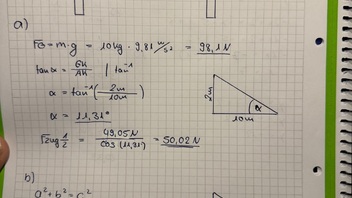 a)
FG = m·g = 10kg · 9,81 m/s² = 98,1N
tan α = GK/AK | tan⁻¹
α = tan⁻¹(2m/10m)
α = 11,31°
2m
α
10m
Fzug 1/2 = 49,05N/cos(11,31°) = 50,02N
b)
a² + b² = c²